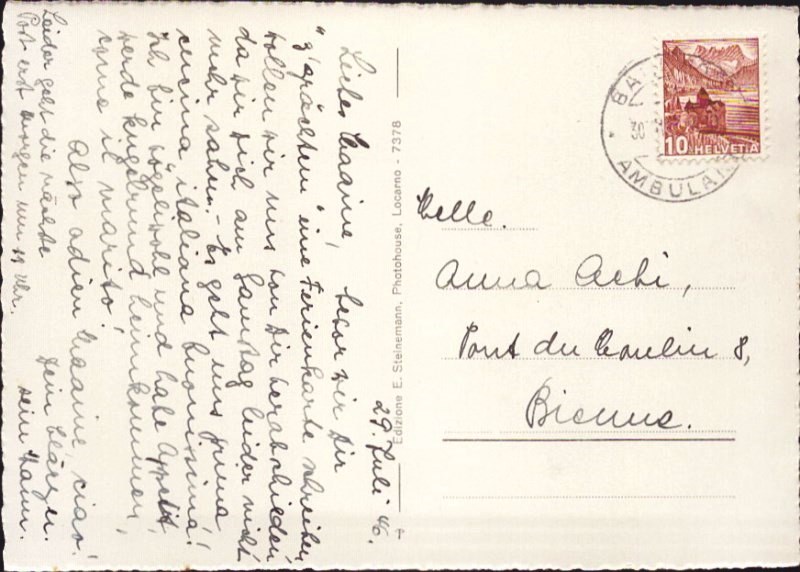 29. Juli 46.
Liebes Maaine, bevor wir Dir
"z'spöchtem" eine Ferienkarte schreiben,
wollen wir uns von Dir verabschieden,
da wir Dich am Samstag leider nicht
mehr sahen. - Es geht uns prima
cucina italiana buonissima!
Ich bin vögeliwohl und habe Appetit
werde kugelrund heimkommen,
come il marito!
Also adieu Maaine, ciao!
Dein
Dein Mann.
Leider geht die nächste
Post erst morgen um 11 Uhr.
Edizione E. Steinemann, Photohouse, Locarno - 7378
10 HELVETIA
BA
30
AMBULAN
Melle.
Anna Aebi,
Pont du Moulin 8,
Bienne.